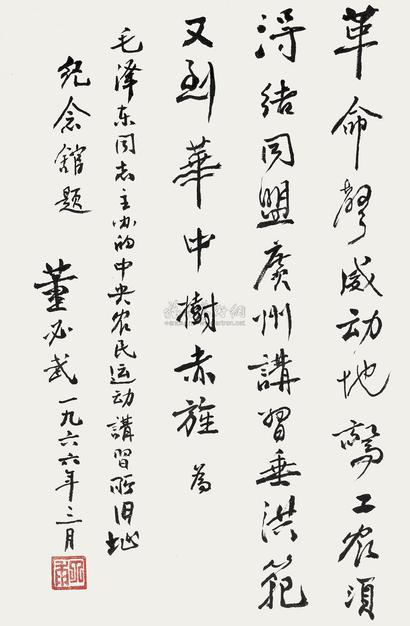 革命聲威动地驚工农须
得结同盟廣州講習垂洪範
又到華中樹赤旌 为
毛泽东同志主办的中央农民运动講習所旧址
纪念館题
董必武一九六六年三月